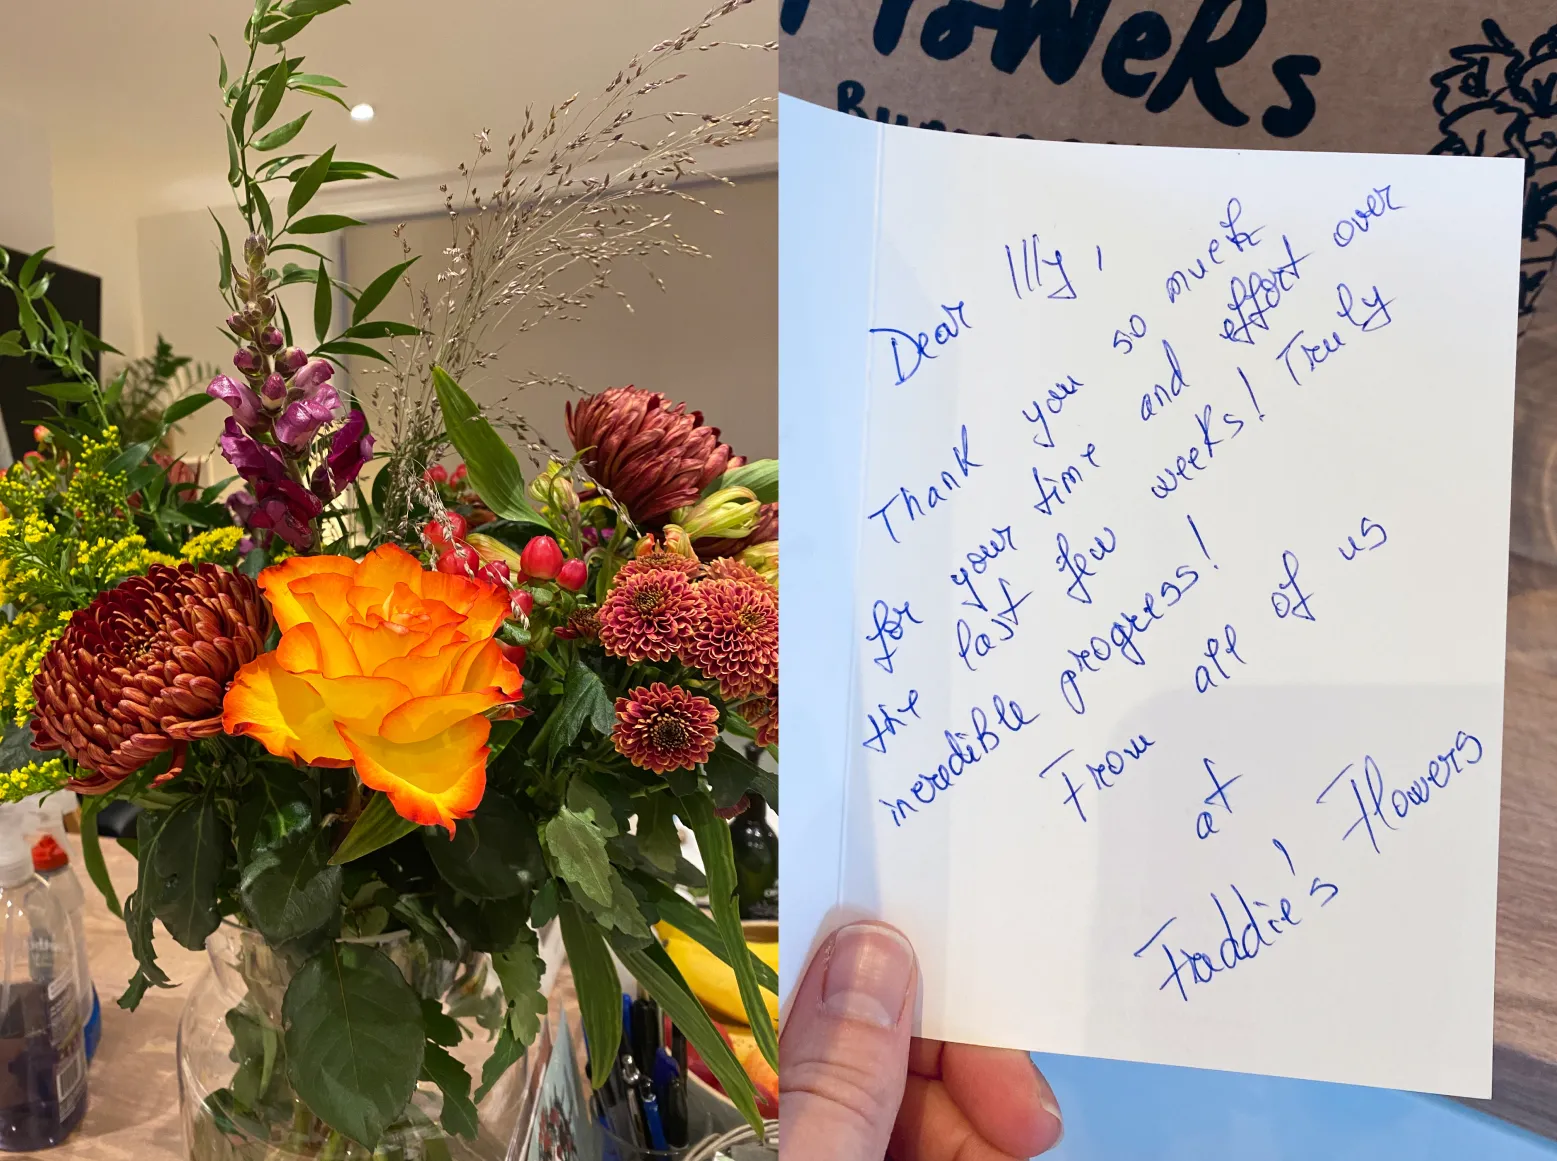 Flowers
Dear Illy,
Thank you so much
for your time and effort over
the last few weeks! Truly
incrediBle progress!
From all of us
at
Freddie's Flowers